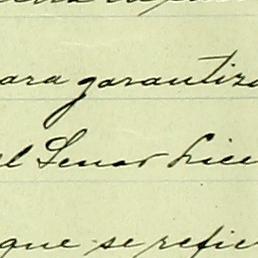 para garantiza
el Senor Lice
que se refie